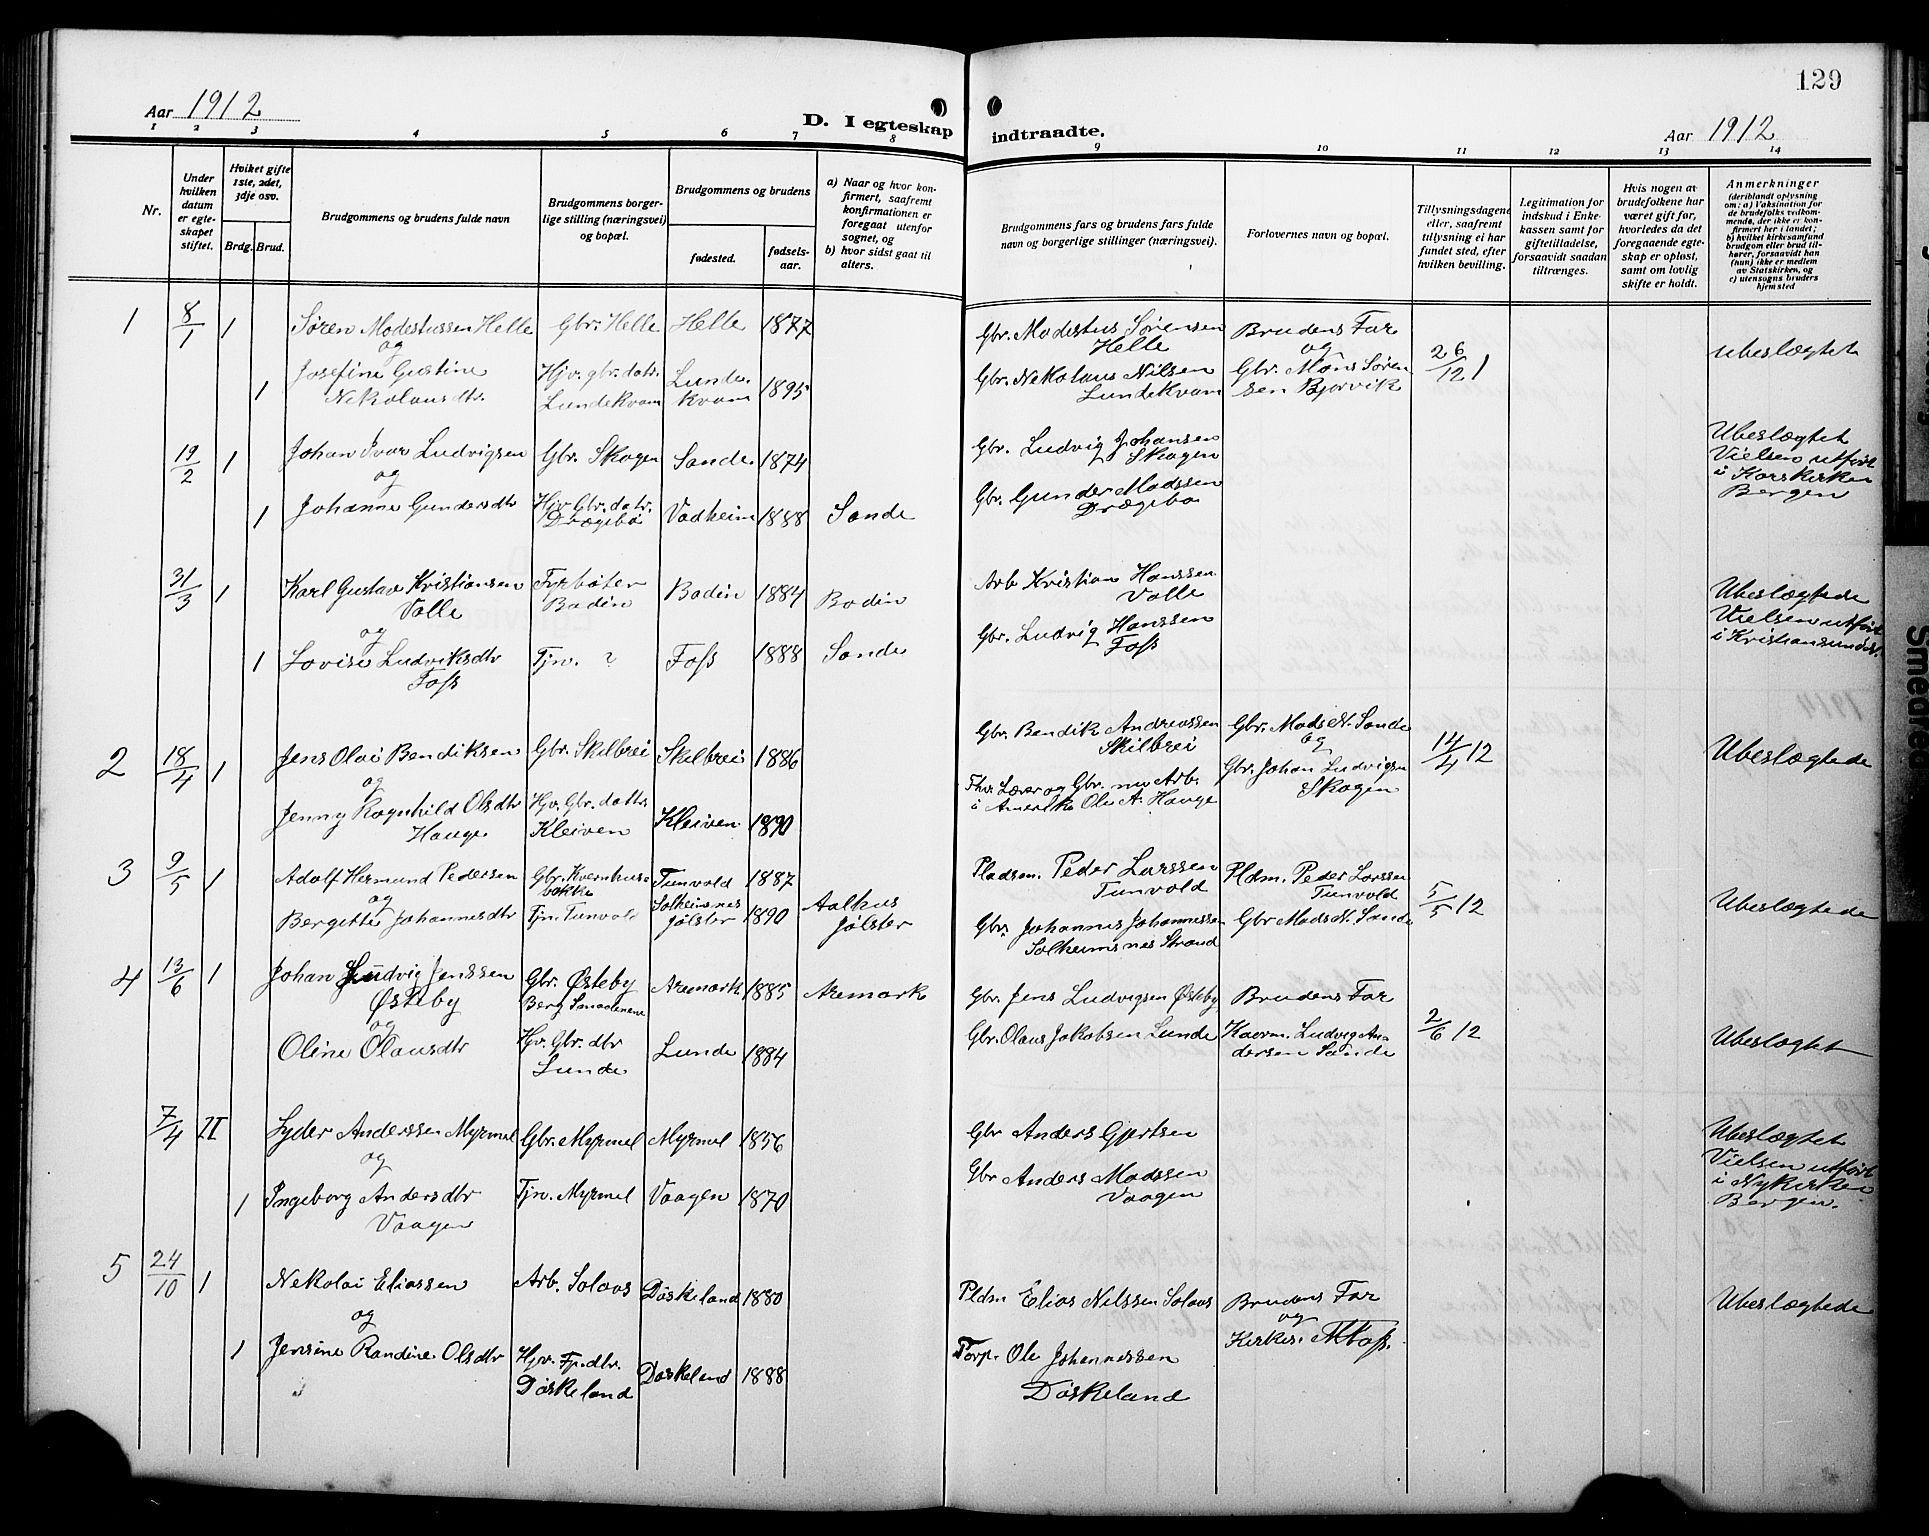 129
Aar 1912
D. I egteskap indtraadte.
Aar 1912
1 2 3 4 5 6 7 8 9 10 11 12 13 14
Nr.
Under hvilken datum er egteskapet stiftet.
Hvilket gifte 1ste, 2det, 3dje osv.
Brdg. Brud.
Brudgommens og brudens fulde navn
Brudgommens borgerlige stilling (næringsvei) og bopæl.
Brudgommens og brudens
fødested.
fødselsaar.
a) Naar og hvor konfirmert, saafremt konfirmationen er foregaat utenfor sognet, og
b) hvor sidst gaat til alters.
Brudgommens fars og brudens fars fulde navn og borgerlige stillinger (næringsvei).
Forlovernes navn og bopæl.
Tillysningsdagene eller, saafremt tillysning ei har fundet sted, efter hvilken bevilling.
Legitimation for indskud i Enkekassen samt for giftetilladelse, forsaavidt saadan tiltrænges.
Hvis nogen av brudefolkene har været gift før, hvorledes da det foregaaende egteskap er opløst, samt om lovlig skifte er holdt.
Anmerkninger (deriblandt oplysning om: a) Vaksination for de brudefolks vedkommende, der ikke er konfirmert her i landet; b) hvilket kirkesamfund brudgom eller brud tilhører, forsaavidt han (hun) ikke er medlem av Statskirken, og c) utensogns bruders hjemsted
1 8/1 1 Søren Modestussen Helle Gbr. Helle Helle 1877 Gbr. Modestus Sørensen Helle Brudens Far 26/12 1 ubeslægtet
og
1 Josefine Gustine Nekolausdtr. Hjv. gbr. datr. Lundekvam Lundekvam 1895 Gbr. Nekolaus Nilsen Lundekvam og Gbr. Mons Sørensen Bjørvik
19/2 1 Johan Ivar Ludvigsen Gbr. Skogen Sande 1874 Gbr. Ludvig Johansen Skogen Ubeslægtet Vielsen utført i Korskirken Bergen
og
1 Johanne Gundersdtr Hjv. Gbr. datr. Drægebø Vadheim 1888 Sande Gbr. Gunder Madssen Drægebø
31/3 1 Karl Gustav Kristiansen Valle Fyrbøter Bodin Bodin 1884 Bodin Arb Kristian Hanssen Valle Ubeslægtede Vielsen utført i Kristiansund
og
1 Lovise Ludviksdtr Foss Tjn. ? Foss 1888 Sande Gbr. Ludvig Hanssen Foss
2 18/4 1 Jens Olai Bendiksen Gbr. Skilbrei Skilbrei 1886 Gbr. Bendik Andreassen Skilbrei Gbr. Mads N. Sande 14/4 12 Ubeslægtede
og
Jenny Ragnhild Olsdtr Hauge Hjv. Gbr. dattr. Kleiven Kleiven 1890 Fhv. Lærer og Gbr. nu Arb. i Amerika Ole A. Hauge og Gbr. Johan Ludvigsen Skogen
3 9/5 1 Adolf Hermund Pedersen Gbr. Kvernhusbakke Tunvold 1887 Pladsm. Peder Larssen Tunvold Pldm. Peder Larssen Tunvold 5/5 12 Ubeslægtede
og
Bergitte Johannesdtr Tjn. Tunvold Solheimsnes Jølster 1890 Aalhus Jølster Gbr. Johannes Johannessen Solheimsnes Strand Gbr Mads N. Sande
4 13/6 1 Johan Ludvig Jenssen Østeby Gbr. Østeby Aremark 1885 Aremark Gbr. Jens Ludvigsen Østeby Brudens Far 2/6 12 Ubeslægtet
og
Oline Olausdtr Hjv. Gbr. dtr Lunde Lunde 1884 Gbr. Olaus Jakobsen Lunde Ludvig Andersen Sande
7/4 II Lyder Anderssen Myrmel Gbr. Myrmel Myrmel 1856 Gbr Anders Gjertsen Ubeslægtet Vielsen utført i Nykirken Bergen.
og
1 Ingeborg Andersdtr Vaagen Tjn. Myrmel Vaagen 1870 Gbr Anders Madssen Vaagen
5 24/10 1 Nekolai Eliassen Arb. Solaas Døskeland 1880 Pldsm Elias Nilssen Solaas Brudens Far Ubeslægtede
og
1 Jensine Randine Olsdtr Hjv. Fp. dtr. Døskeland Døskeland 1888 Forp. Ole Johannessen Døskeland og Kirkes. M Foss.